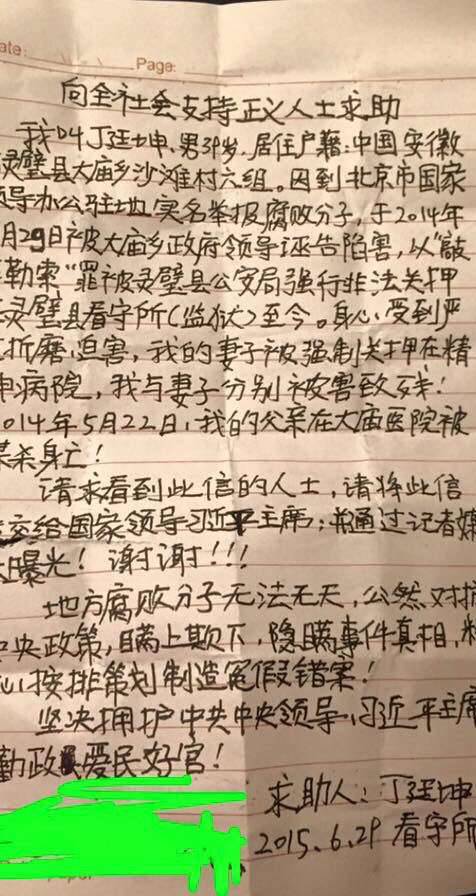 ate:
Page:
向全社会支持正义人士求助
我叫丁廷坤、男39岁，居住户籍：中国安徽
灵璧县大庙乡沙滩村六组。因到北京市国家
领导办公驻地实名举报腐败分子，于2014年
月29日被大庙乡政府领导诬告陷害，以“敲
勒索”罪被灵璧县公安局强行非法关押
灵璧县看守所（监狱）至今。身心受到严
折磨迫害，我的妻子被强制关押在精
神病院，我与妻子分别被害致残！
014年5月22日，我的父亲在大庙医院被
谋杀身亡！
请求看到此信的人士，请将此信
交给国家领导习近平主席；并通过记者媒
曝光！谢谢！！！
地方腐败分子无法无天，公然对抗
中央政策，瞒上欺下，隐瞒事件真相，精
心按排策划制造冤假错案！
坚决拥护中共中央领导，习近平主席
勤政爱民好官！
求助人：丁廷坤
2015.6.29 看守所